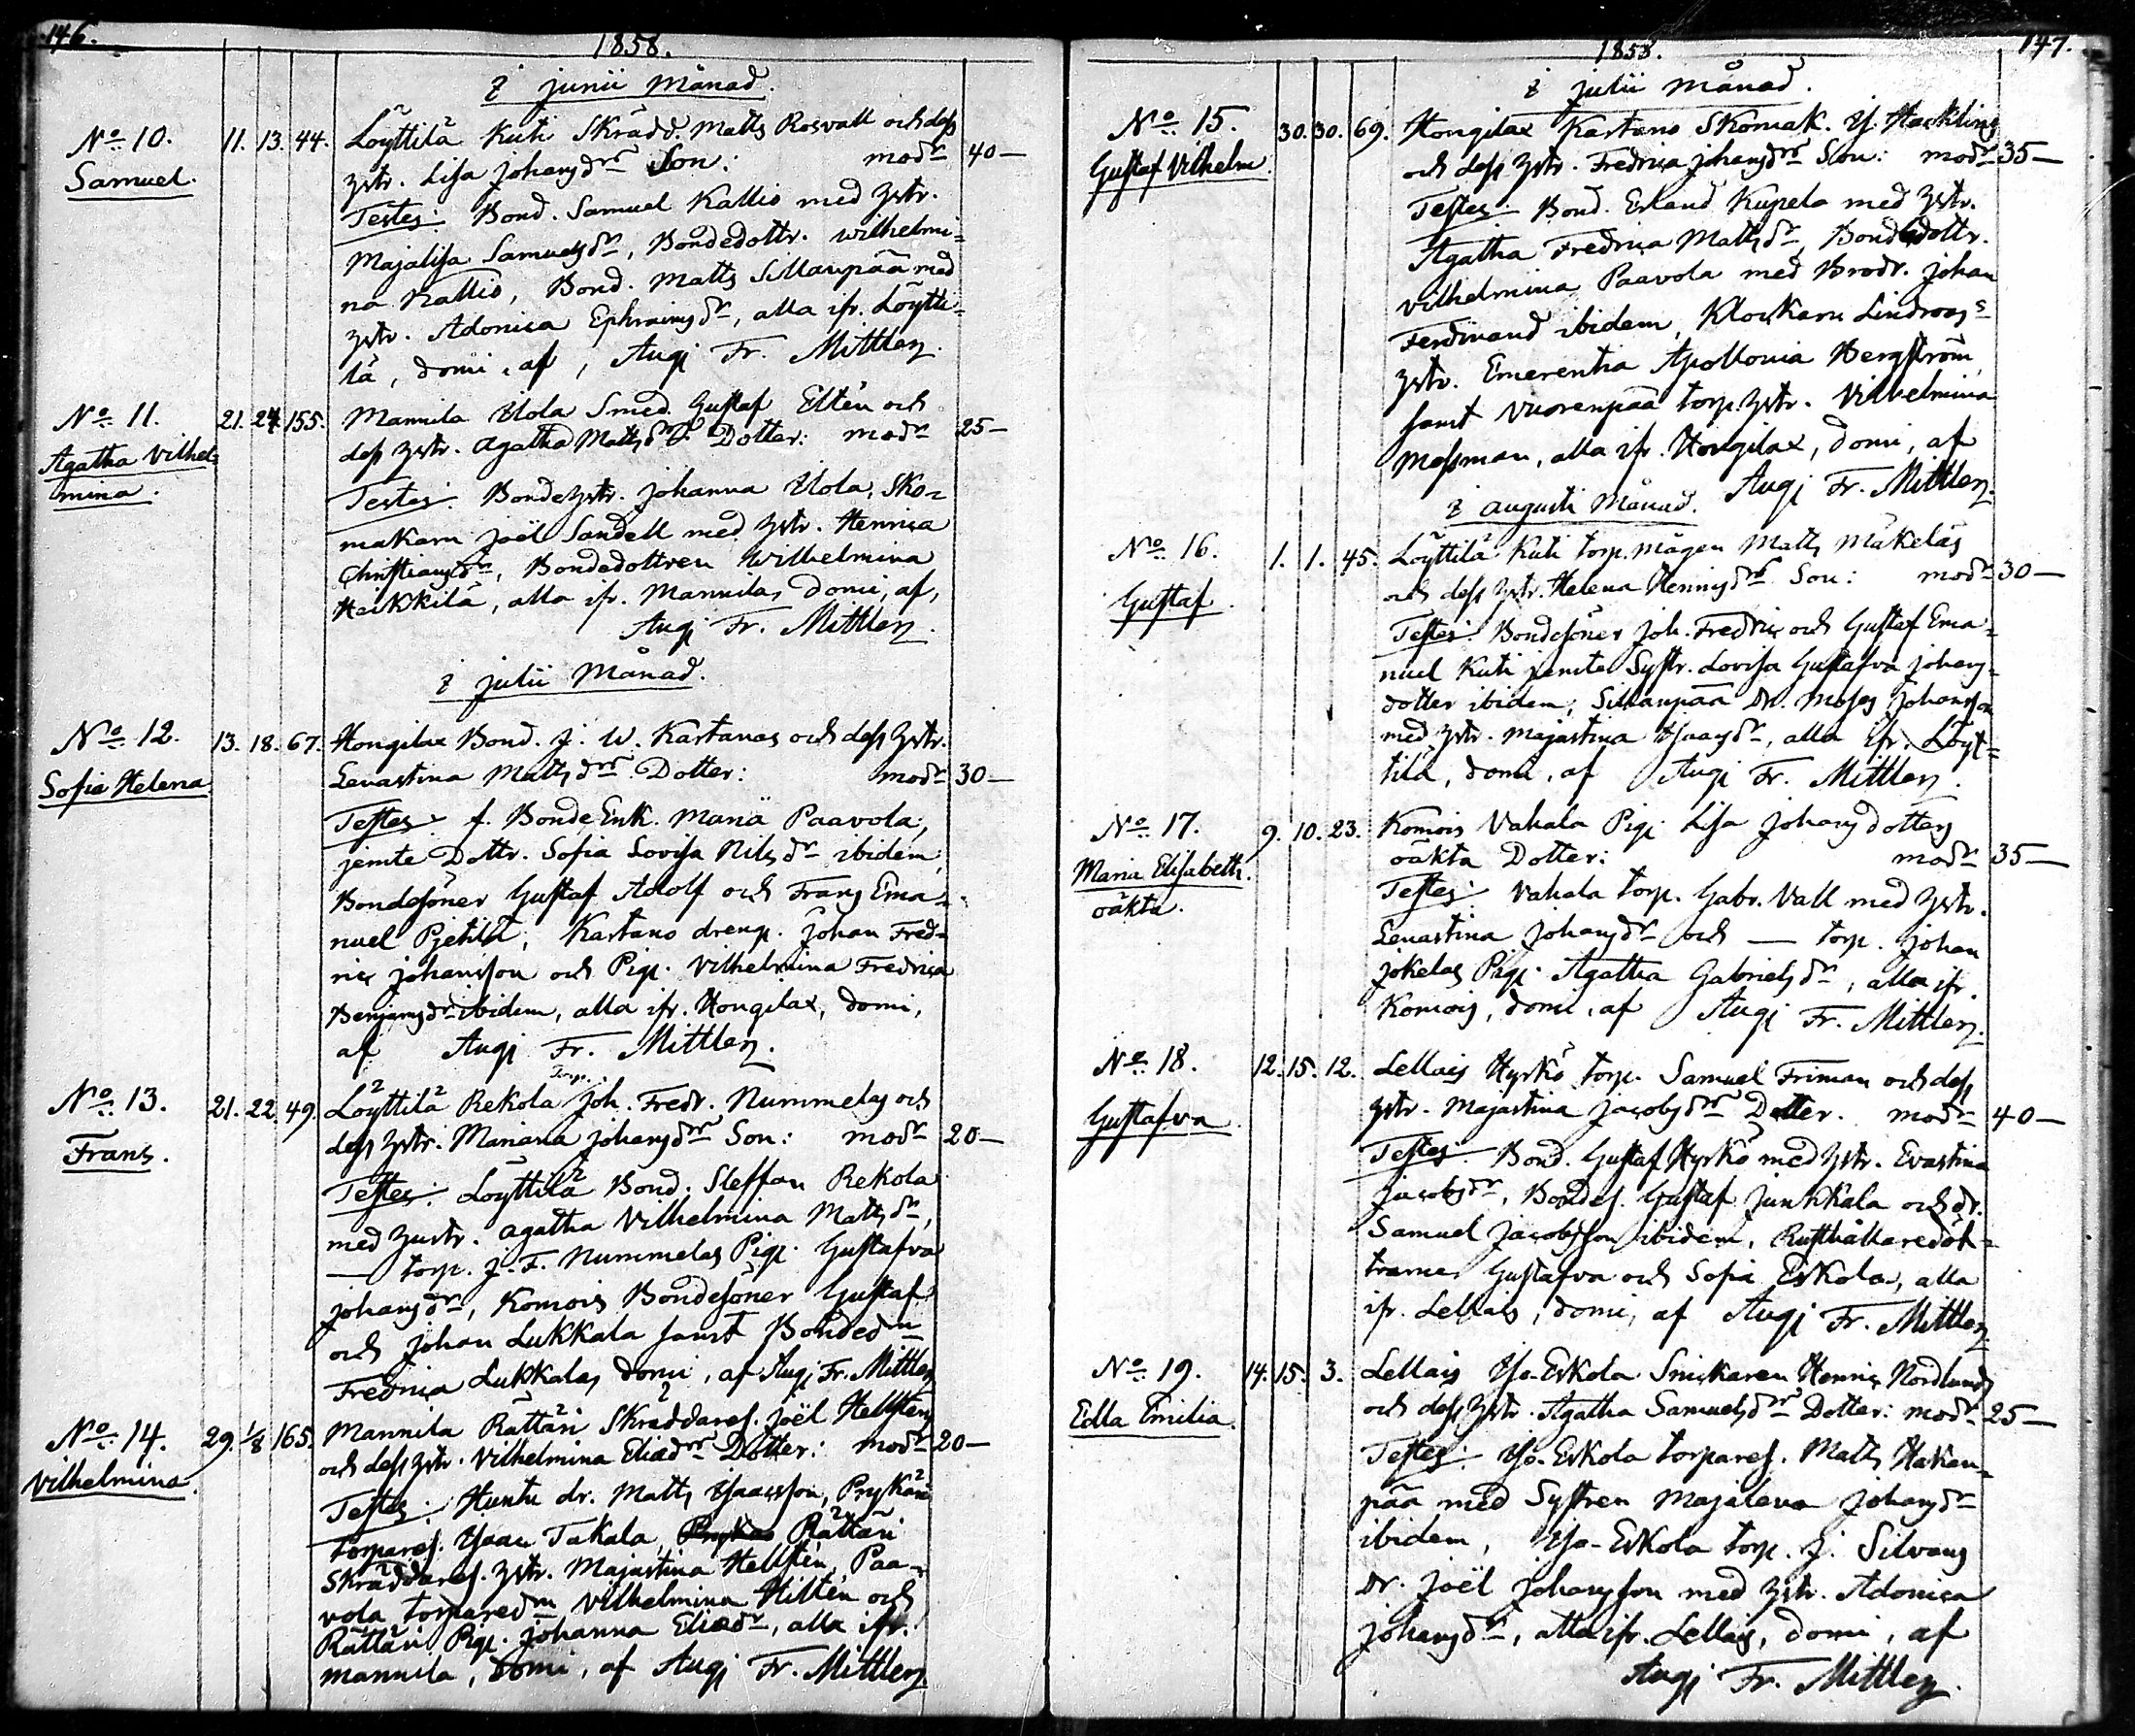 146.
1858.
i junii Månad.
No 10. 11. 13. 44. Löyttilä Kuti Skrädd. Matts Rosvall och dess
Samuel. hstr. Lisa Johansdr Son: modr 40—
Testes: Bond. Samuel Kallio med hstr.
Majalisa Samuelsdr, Bondedottr. Wilhelmi=
na Kallio, Bond. Matts Sillanpää med
hstr. Adonica Ephraimsdr, alla ifr. Löytti=
lä, domi, af, Augj Fr. Mittler.
No 11. 21. 24. 155. Mannila Uola Smed. Gustaf Eltén och
Agatha Vilhel= dess hstr. Agatha Mattsdr Dotter: modr 25—
mina. Testes: Bondehstr. Johanna Uola, Sko=
makarn Joël Sandell med hstr. Henrica
Christiansdr, Bondedottren Wilhelmina
Heikkilä, alla ifr. Mannila, domi, af,
Augj Fr. Mittler.
i julii Månad.
No 12. 13. 18. 67. Hongilax Bond. J. W. Kartanos och dess hstr.
Sofia Helena Lenastina Mattsdr Dotter: modr 30—
Testes: f. Bonde Enk. Maria Paavola,
jemte Dottr. Sofia Lovisa Nilsdr ibidem,
Bondesöner Gustaf Adolf och Frans Ema=
nuel Pjetilä; Kartano dreng. Johan Fred=
ric Johansson och Pig. Vilhelmina Fredrica
Benjamsdr ibidem, alla ifr. Hongilax, domi,
af Augj Fr. Mittler.
Torp.
No 13. 21. 22. 49. Löyttilä Rekola Joh. Fredr. Nummelas och
Frans. dess hstr. Mariana Johansdr Son: modr 20—
Testes: Löyttilä Bond. Steffan Rekola
med hustr. Agatha Vilhelmina Mattsdr,
— torp. J. F. Nummelas Pig. Gustafva
Johansdr, Komois Bondesöner Gustaf
och Johan Lukkala samt Bondedn
Fredrica Lukkala, domi, af Augj Fr. Mittler
No 14. 29. 1/8 165. Mannila Rättäri Skräddares. Joël Hellstens
Vilhelmina. och dess hstr. Vilhelmina Eliædr Dotter: modr 20—
Testes: Huntu dr. Matts Isaacsson, Prykäri
torpares. Isaac Takala, Rättäri
Skräddares. hstr. Majastina Hellstén, Paa=
vola torparedn Vilhelmina Hiltén och
Rättäri Pig. Johanna Eliædr, alla ifr.
Mannila, domi, af Augj Fr. Mittler
147.
1858.
i julii Månad.
No 15. 30. 30. 69. Hongilax Kartano Skomak. Is. Hackling
Gustaf Vilhelm. och dess hstr. Fredrica Johansdr Son: modr 35—
Testes: Bond. Erland Kupela med hstr.
Agatha Fredrica Mattsdr, Bondedottr.
Vilhelmina Paavola med Brodr. Johan
Ferdinand ibidem, Klockarn Lindroos s
hstr. Emerentia Apollonia Bergström,
samt Vuorenpää torp. hstr. Vilhelmina
Messman, alla ifr. Hongilax, domi, af
Augj Fr. Mittler.
i augusti Månad.
No 16. 1. 1. 45. Löyttilä Kuti torp. mågen Matts Mäkeläs
Gustaf. och dess hstr. Helena Henricsdr Son: modr 30—
Testes: Bondesöner Joh. Fredric och Gustaf Ema=
nuel Kuti jemte Systr. Lovisa Gustafva Johans=
dotter ibidem; Sillanpää Dr. Moses Johansson
med hstr. Majastina Isaacsdr, alla ifr. Löyt=
tilä, domi, af Augj Fr. Mittler.
No 17. 9. 10. 23. Komois Vahala Pig. Lisa Johansdotters
Maria Elisabeth. oäkta Dotter: modr 35—
oäkta. Testes: Vahala torp. Gabr. Vall med hstr.
Lenastina Johansdr och — torp. Johan
Jokelas Pig. Agatha Gabrielsdr, alla ifr.
Komois, domi, af Augj Fr. Mittler.
No 18. 12. 15. 12. Lellais Hyrkö torp. Samuel Friman och dess
Gustafva. hstr. Majastina Jacobsdr Dotter. modr 40—
Testes: Bond. Gustaf Hyrkö med hstr. Evastina
Jacobsdr, Bondes. Gustaf Junkkala och dr.
Samuel Jacobsson ibidem, Rusthållaredöt=
trarne Gustafva och Sofia Eskola, alla
ifr. Lellais, domi, af Augj Fr. Mittler
No 19. 14. 15. 3. Lellais Yso-Eskola Snickaren Henric Nordlunds
Edla Emilia. och dess hstr. Agatha Samuelsdr Dotter: modr 25—
Testes: Yso-Eskola torpares. Matts Hakan=
pää med Systren Majalena Johansdr
ibidem, Yso-Eskola torp. J. Silvons
Dr. Joël Johansson med hstr. Adonica
Johansdr, alla ifr. Lellais, domi, af
Augj Fr. Mittler.